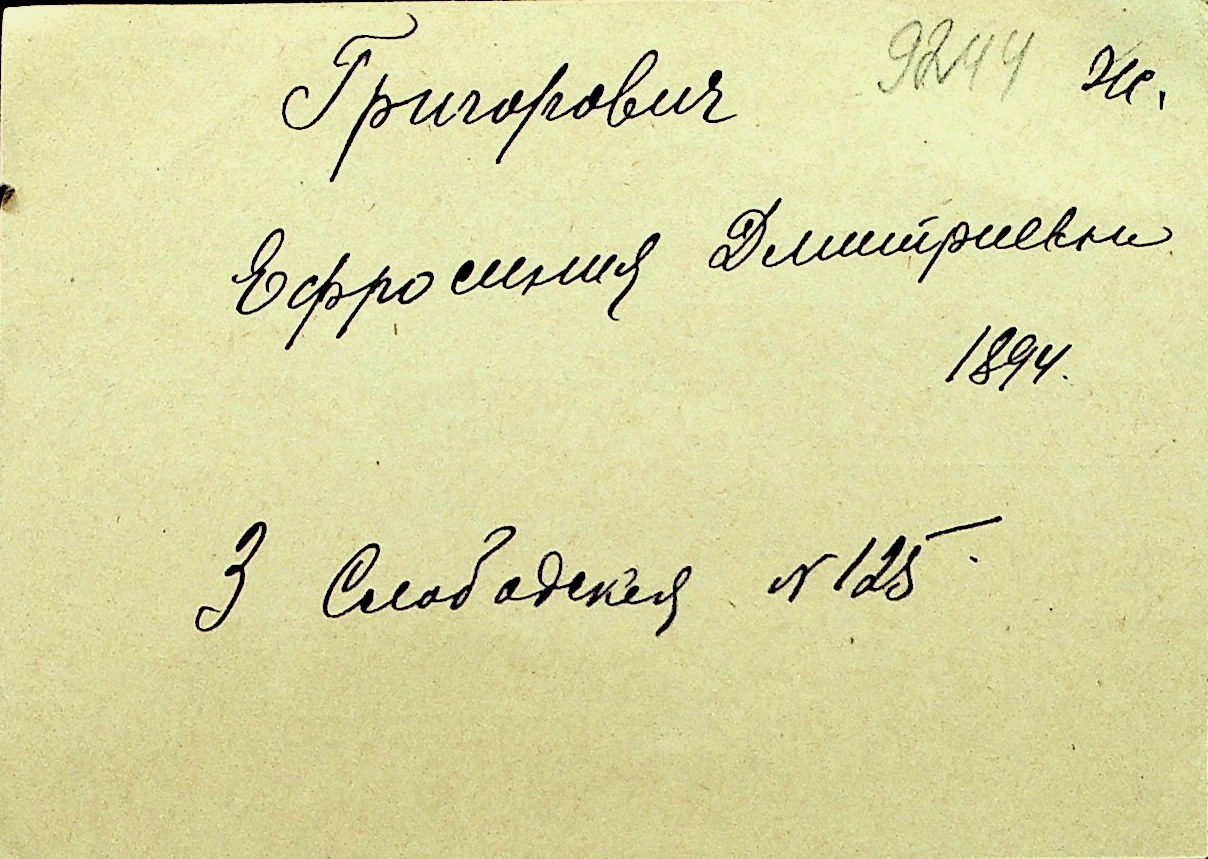 Григорович 9244 Ж.
Ефросиния Дмитриевн
1894.
3 Слободская N 125